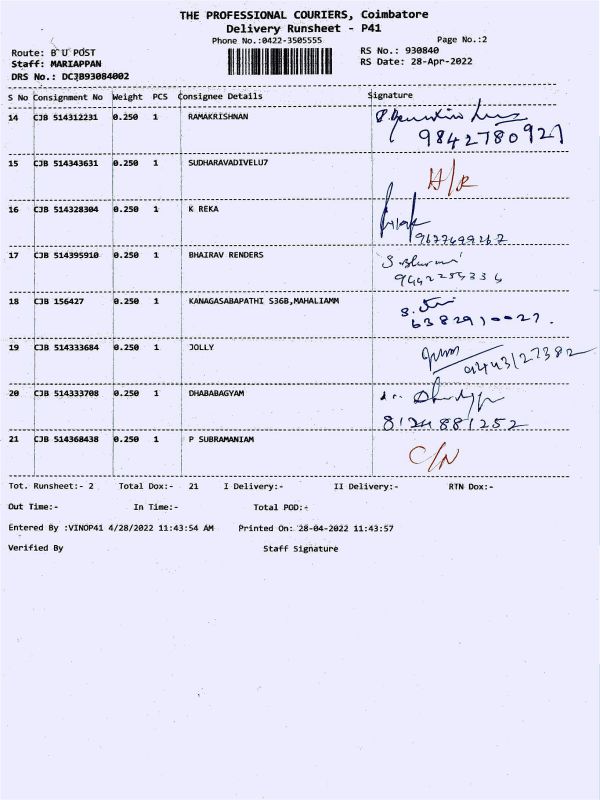 THE PROFESSIONAL COURIERS, Coimbatore
Delivery Runsheet - P41
Phone No.:0422-3505555
Page No.:2
Route: B U POST
RS No.: 930840
Staff: MARIAPPAN
RS Date: 28-Apr-2022
DRS No.: DCJB93084002
S No Consignment No Weight PCS Consignee Details Signature
14 CJB 514312231 0.250 1 RAMAKRISHNAN
9842780927
15 CJB 514343631 0.250 1 SUDHARAVADIVELU7
H/R
16 CJB 514328304 0.250 1 K REKA
17 CJB 514395910 0.250 1 BHAIRAV RENDERS
18 CJB 156427 0.250 1 KANAGASABAPATHI S36B,MAHALIAMM
6382910027.
19 CJB 514333684 0.250 1 JOLLY
9443127382
20 CJB 514333708 0.250 1 DHABABAGYAM
8124881252
21 CJB 514368438 0.250 1 P SUBRAMANIAM
C/N
Tot. Runsheet:- 2 Total Dox:- 21 I Delivery:- II Delivery:- RTN Dox:-
Out Time:- In Time:- Total POD:-
Entered By :VINOP41 4/28/2022 11:43:54 AM Printed On: 28-04-2022 11:43:57
Verified By Staff Signature